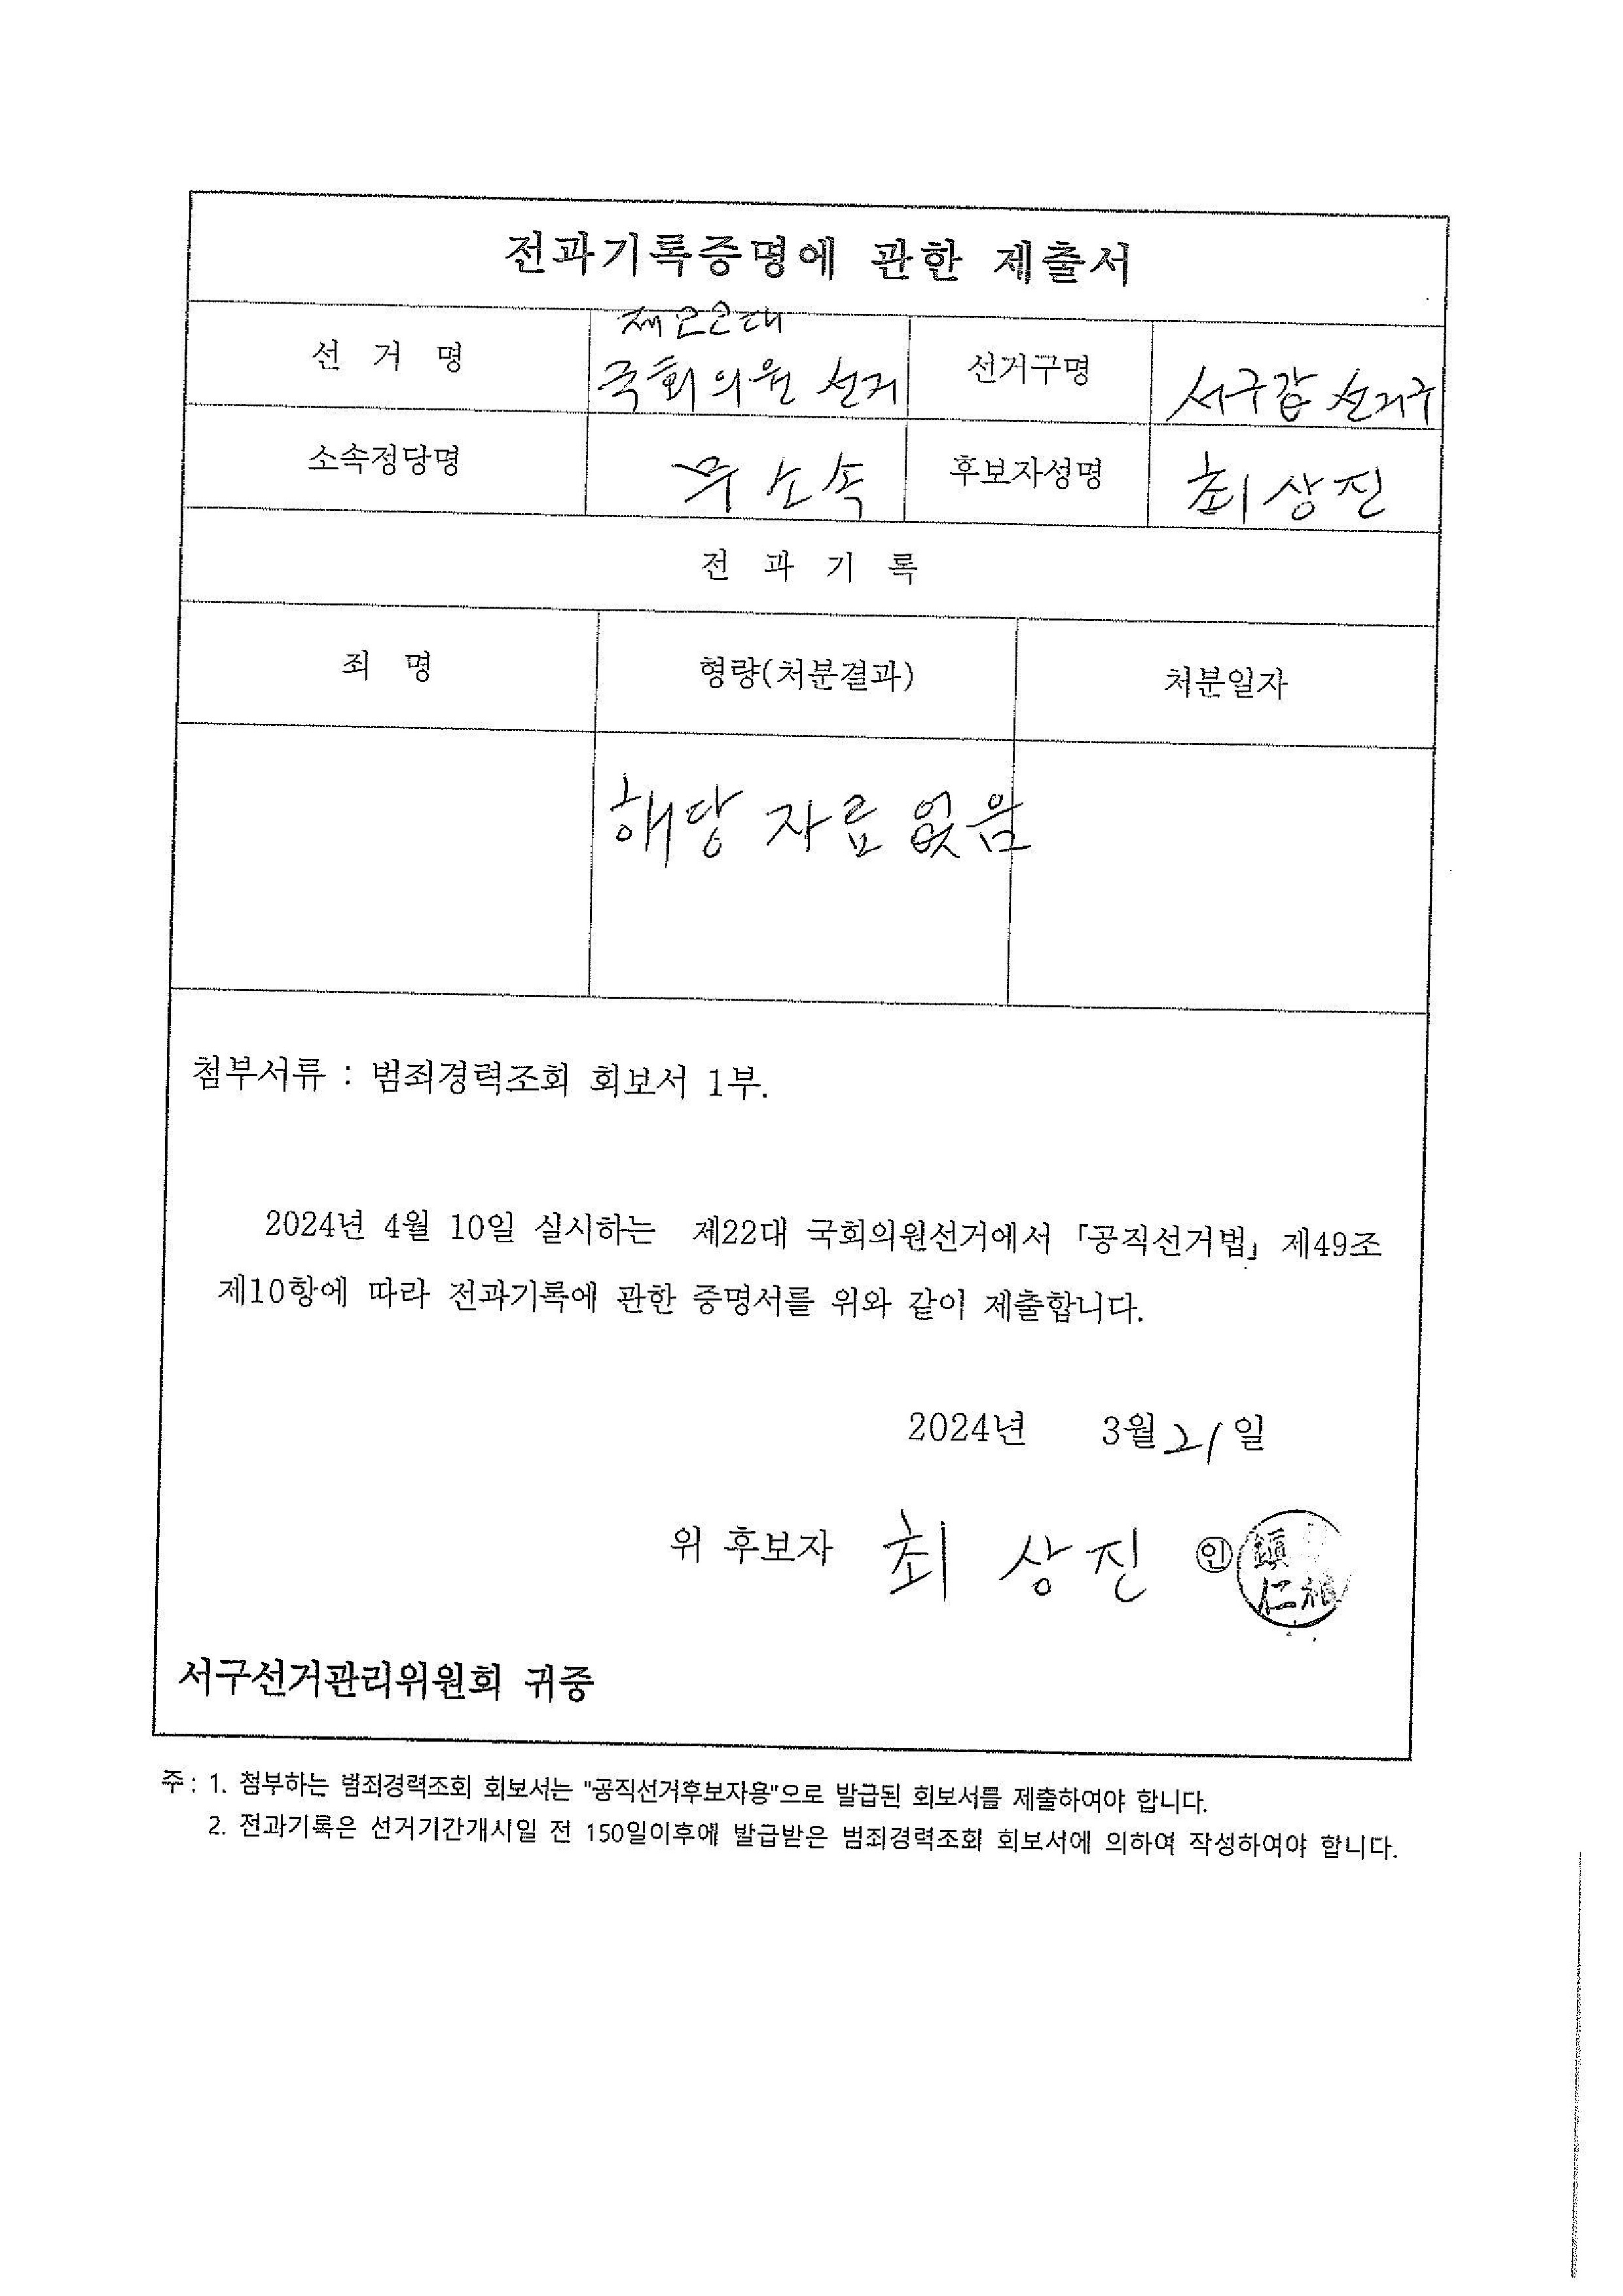 전과기록증명에 관한 제출서
선 거 명
제22대
국회의원 선거
선거구명
서구갑 선거구
소속정당명
무소속
후보자성명
최상진
전 과 기 록
죄 명
형량(처분결과)
처분일자
해당 자료 없음
첨부서류 : 범죄경력조회 회보서 1부.
2024년 4월 10일 실시하는 제22대 국회의원선거에서 「공직선거법」 제49조
제10항에 따라 전과기록에 관한 증명서를 위와 같이 제출합니다.
2024년 3월 21일
위 후보자 최 상 진 ㊞
서구선거관리위원회 귀중
주 : 1. 첨부하는 범죄경력조회 회보서는 "공직선거후보자용"으로 발급된 회보서를 제출하여야 합니다.
2. 전과기록은 선거기간개시일 전 150일이후에 발급받은 범죄경력조회 회보서에 의하여 작성하여야 합니다.